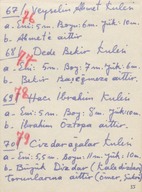 67) Veyselin Ahmet Kulesi
76
a. Eni: 5 m. Boyu: 6 m. Yük: 10 m.
b. Ahmet'e aittir.
68) Dede Bekir Kulesi
77
a. Eni: 5 m. Boy: 7 m. Yük: 6 m.
b. Bekir aittir.
69) Hacı İbrahim Kulesi
78
a. Eni: 5 m. Boy: 5 m. Yük: 10 m.
b. İbrahim Öztopa aittir.
70) Cizdaroğlalar Kulesi
79
a. Eni: 5,5 m. Boy: 11 m. Yük: 10 m.
b. Büyük Dizdar (Kale
torunlarına aittir (Ömer,